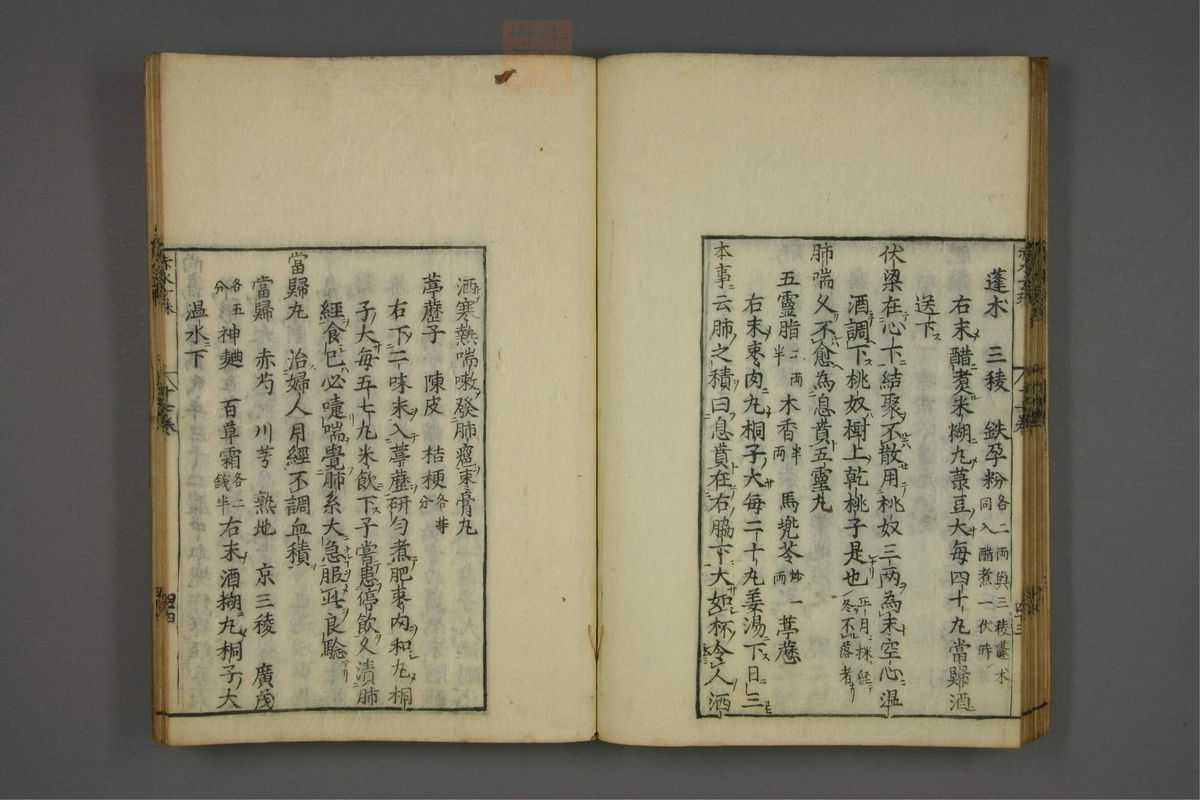 蓬朮　三稜　鉄孕粉各二両與三稜蓬朮同入醋煮一伏時
右末醋煮米糊丸菉豆大每四十丸當歸酒
送下
伏梁在心下結聚不散用桃奴三両為末空心温
酒調下桃奴樹上乾桃子是也正月採経冬不落者
肺喘久不愈為息賁五靈丸
五靈脂二両半木香半両　馬兠苓炒一両　葶藶
右末枣肉丸桐子大每二十丸姜湯下日三
本事云肺之積曰息賁在右脇下大如杯令人洒
洒寒熱喘嗽發肺癰枣膏丸
葶藶子　陳皮　桔梗各等分
右下二味末入葶藶研匀煮肥枣肉和丸桐
子大每五七丸米飲下子嘗患停飲久漬肺
經食已必嚏喘覺肺系大急服此良驗
當歸丸　治婦人月經不調血積
當歸　赤芍　川芎　熟地　京三稜　廣茂
各五分神麯　百草霜各二錢半右末酒糊丸桐子大
温水下